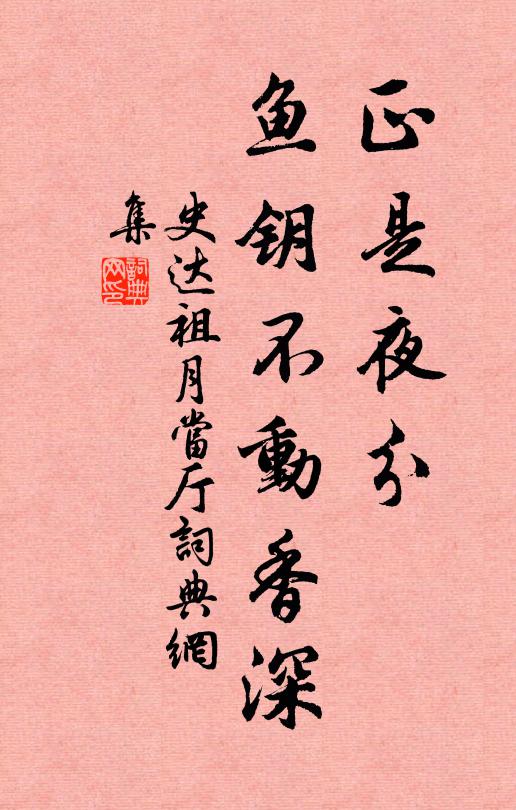 正是夜分
鱼钥不動香深
史达祖月當厅詞典網
集
詞典
网印